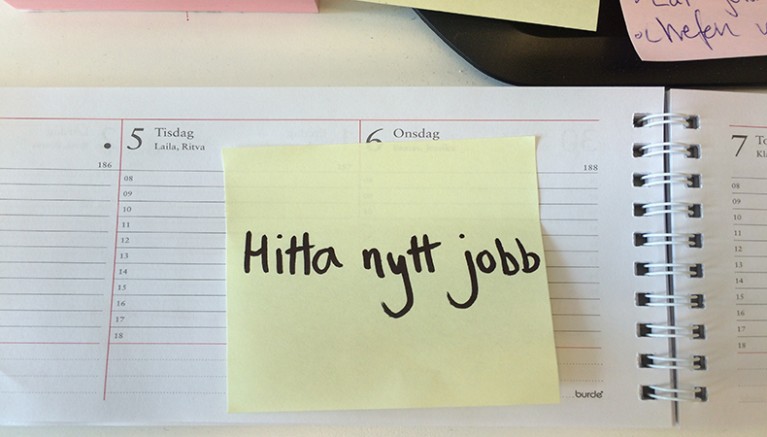 chefen
5 Tisdag
Laila, Ritva
186
08
09
10
11
12
13
14
15
16
17
18
6 Onsdag
188
Hitta nytt jobb
burde
7
08
09
10
11
12
13
14
15
16
17
18